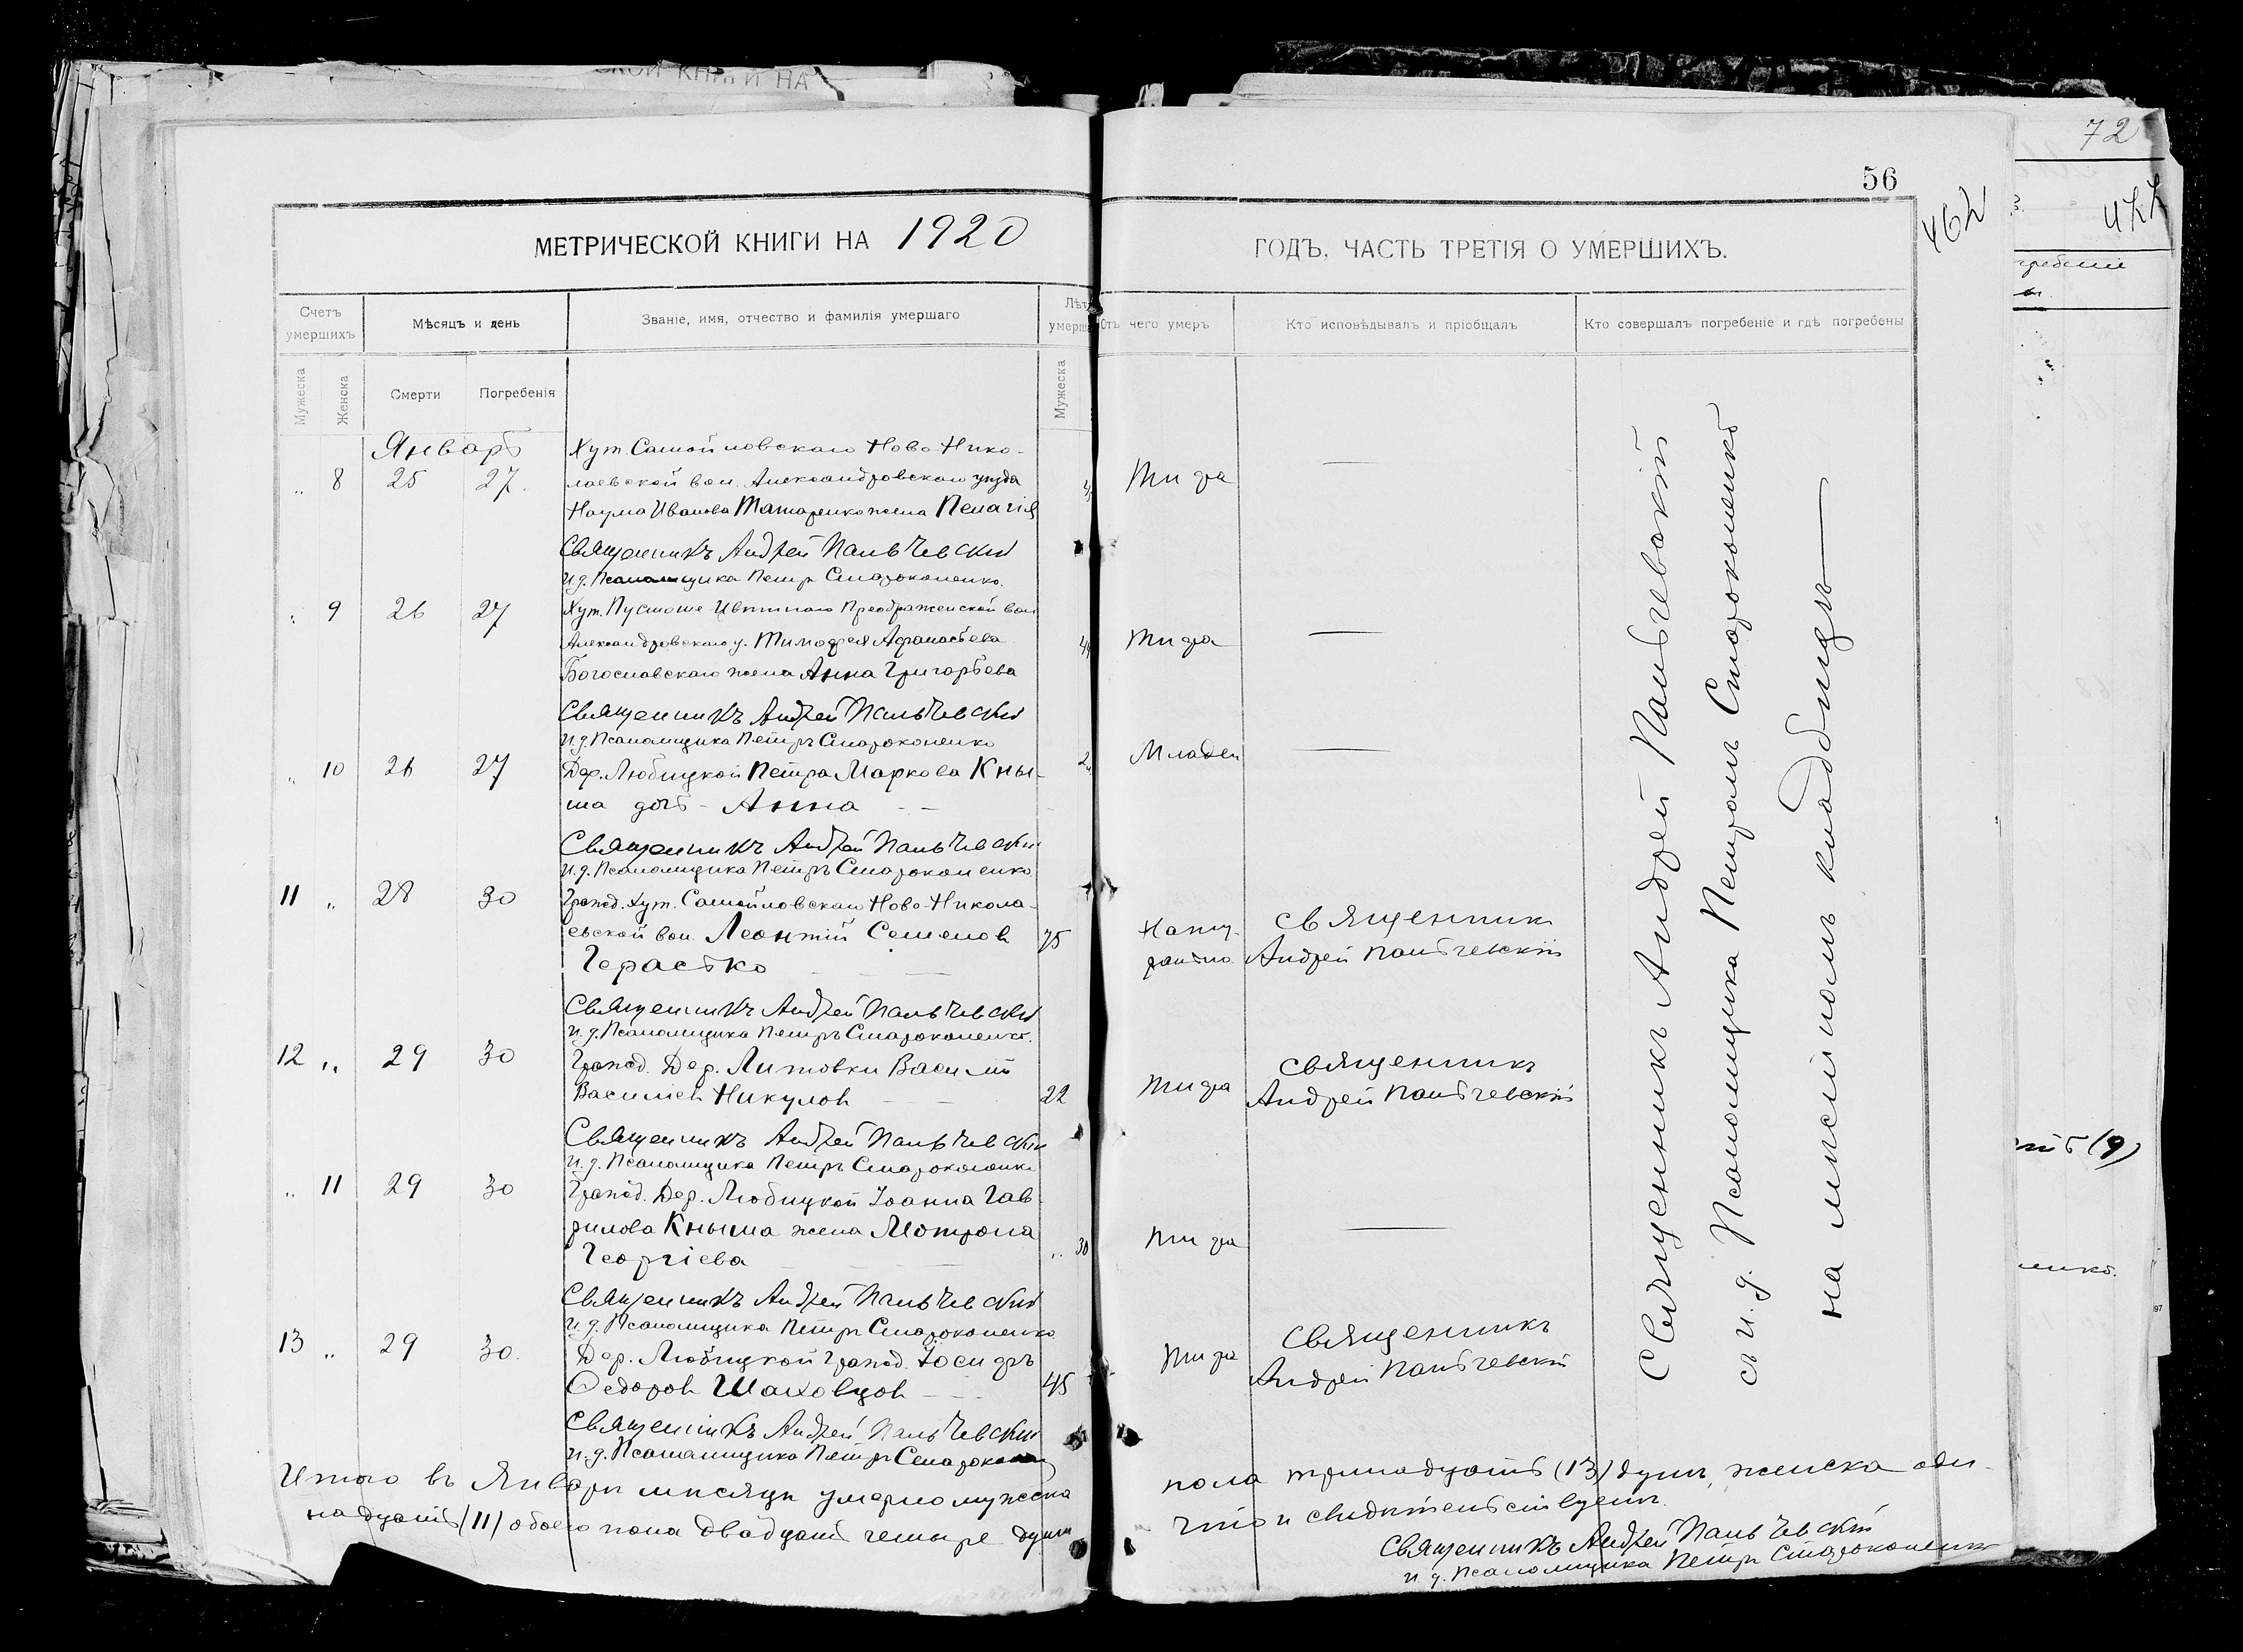 СКОЙ КНИГИ НА
МЕТРИЧЕСКОЙ КНИГИ НА 1920
Счетъ умершихъ
Мѣсяцъ и день
Званіе, имя, отчество и фамилія умершаго
Лѣт
умерша
Мужеска
Женска
Смерти
Погребенія
Мужеска
Январь
„ 8 25 27.
Хут. Самойловскаго Ново-Нико-
лаевской вол. Александровскаго уѣзда
Наума Иванова Татаренко жена Пелагія
Священникъ Андрей Пальчевскій
И.д. Псаломщика Петръ Староконенко.
„ 9 26 27
Хут. Пустоше-Цвѣтнаго Преображенской вол
Александровскаго у. Тимофея Афанасьева
Богославскаго жена Анна Григорьева
Священникъ Андрей Пальчевскій
И.д. Псаломщика Петръ Староконенко
„ 10 26 27
Дер. Любицкой Петра Маркова Кны-
ша дочь - Анна
Священникъ Андрей Пальчевскій
И.д. Псаломщика Петръ Староконенко
11 „ 28 30
Гражд. Хут. Самойловскаго Ново-Никола-
евской вол. Леонтій Семенов 75
Герасько
Священникъ Андрей Пальчевскій
И.д. Псаломщика Петръ Староконенко.
12 „ 29 30
Гражд. Дер. Литовки Василій
Василіев Никулов 22
Священникъ Андрей Пальчевскій
И.д. Псаломщика Петръ Староконенко
„ 11 29 30
Гражд. Дер. Любицкой Іоанна Гав-
рилова Кныша жена Мотрона
Георгіева „ 30
Священникъ Андрей Пальчевскій
И.д. Псаломщика Петръ Староконенко
13 „ 29 30.
Дер. Любицкой Гражд. Іосифъ
Федоров Шаховцов 45
Священникъ Андрей Пальчевскій
И.д. Псаломщика Петръ Староконенко
Итого въ Январѣ мѣсяцѣ умерло мужеска
надцать (11) обоего пола двадцать четыре души
56
462
ГОДЪ, ЧАСТЬ ТРЕТІЯ О УМЕРШИХЪ.
Отъ чего умеръ
Кто исповѣдывалъ и пріобщалъ
Кто совершалъ погребеніе и гдѣ погребены
Тифа
Тифа
Младен
Нату-
рально
Священник
Андрей Пальчевскій
Тифа
Священникъ
Андрей Пальчевскій
Тифа
Тифа
Священникъ
Андрей Пальчевскій
Священникъ Андрей Пальчевскій
съ и.д. Псаломщика Петромъ Староконенко
на мѣстномъ кладбищѣ
пола тринадцать (13) душъ, женска оди-
что и свидѣтельствуемъ.
Священникъ Андрей Пальчевскій
и.д. Псаломщика Петръ Староконенко
72
422
гребеніе
(9)
97